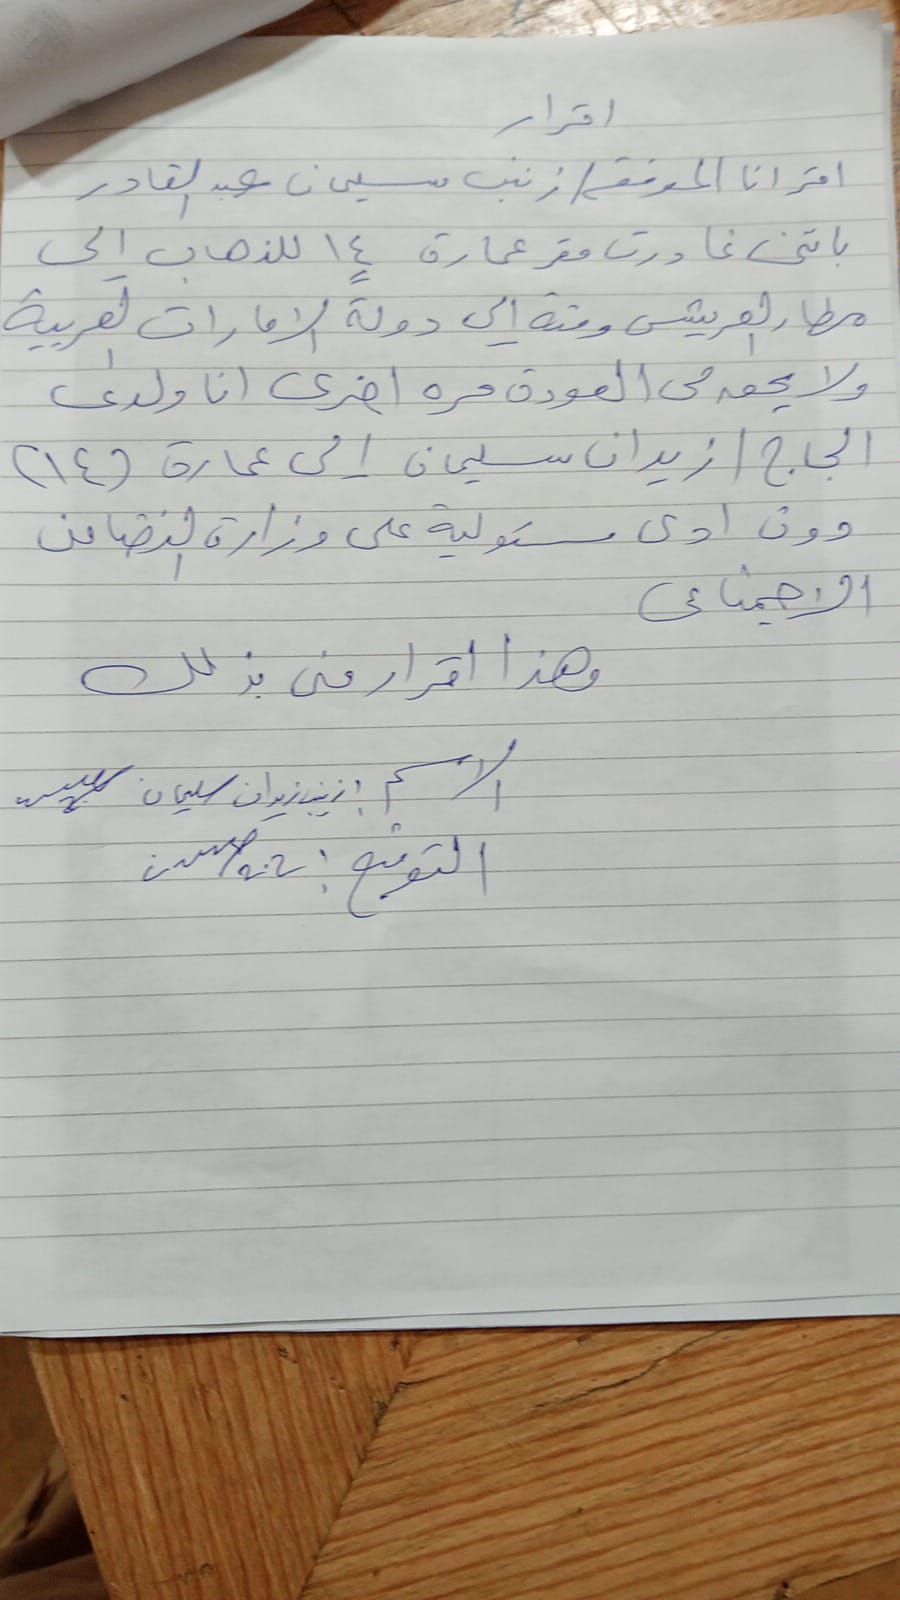 اقرار
اقر انا الموقعة / زينب سليمان عبد القادر
بانني غادرت مقر عمارة ١٤ للذهاب الى
مطار العريش ومنه الى دولة الامارات العربية
ولا يحق لى العودة مره اخرى انا ولدى
الحاج / زيدان سليمان الى عمارة (١٤)
دون ادى مسئولية على وزارة التضامن
الاجتماعى
وهذا اقرار منى بذلك
الاسم : زينب زيدان سليمان
التوقيع :